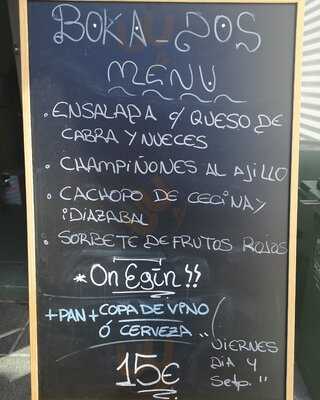 BOKA-DOS
MENU
• ENSALADA c/ QUESO DE
CABRA Y NUECES
• CHAMPIÑONES AL AJILLO
• CACHOPO DE CECINA Y
IDIAZABAL
• SORBETE DE FRUTOS ROJOS
* On Egin!!
+PAN+COPA DE VINO
Ó CERVEZA
15€
"VIERNES
DIA 4
Setp."